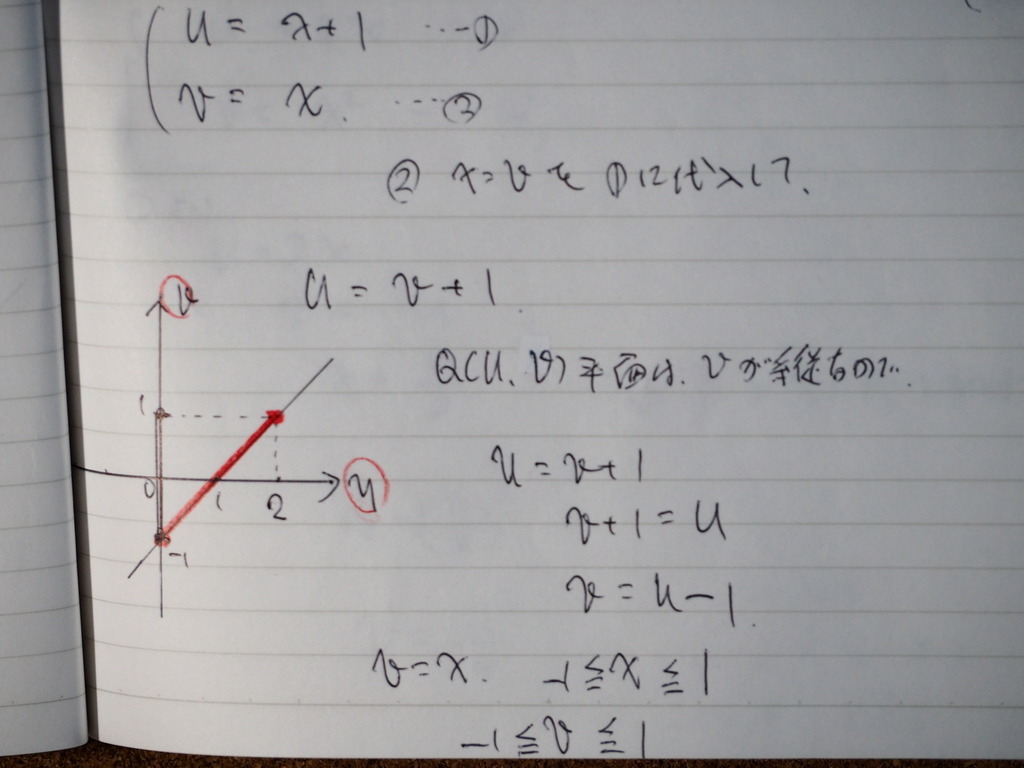 u = x+1 …①
v = x. …②
② x=v を ①に代入して、
u = v+1.
Q(u、v)平面は、vが縦なので、
u = v+1
v+1 = u
v = u-1.
v
1
0
1
2
u
-1
v=x. -1≦x≦1
-1≦v≦1